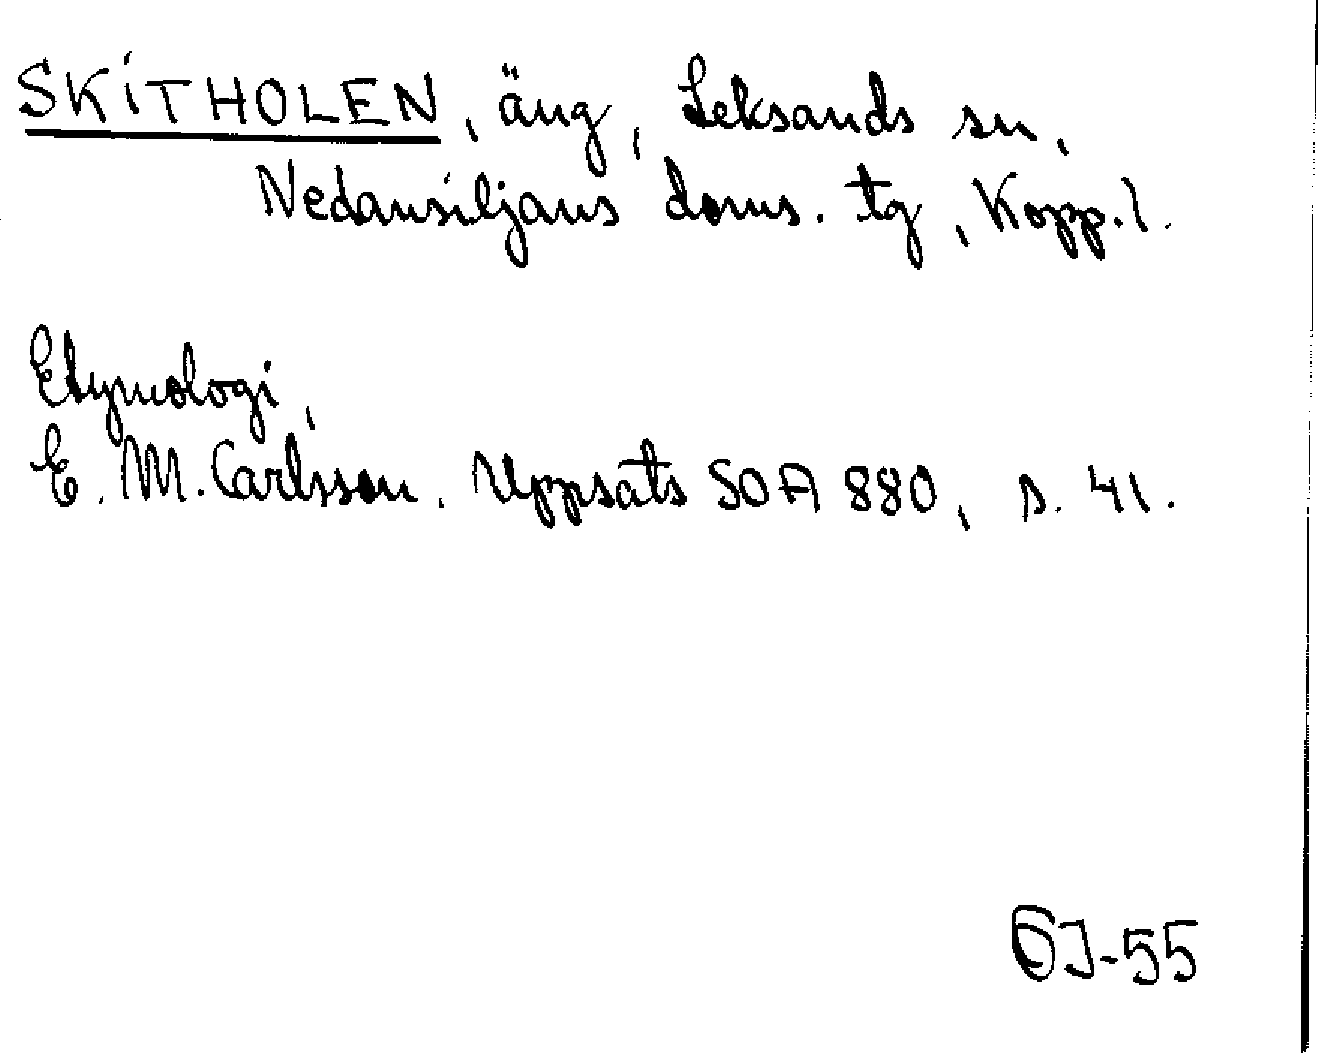 SKITHOLEN, äng, Leksands sn,
Nedansiljans doms. tg, Kopp. l.
Etymologi,
E. M. Carlsson. Uppsats SOA 880, s. 41.